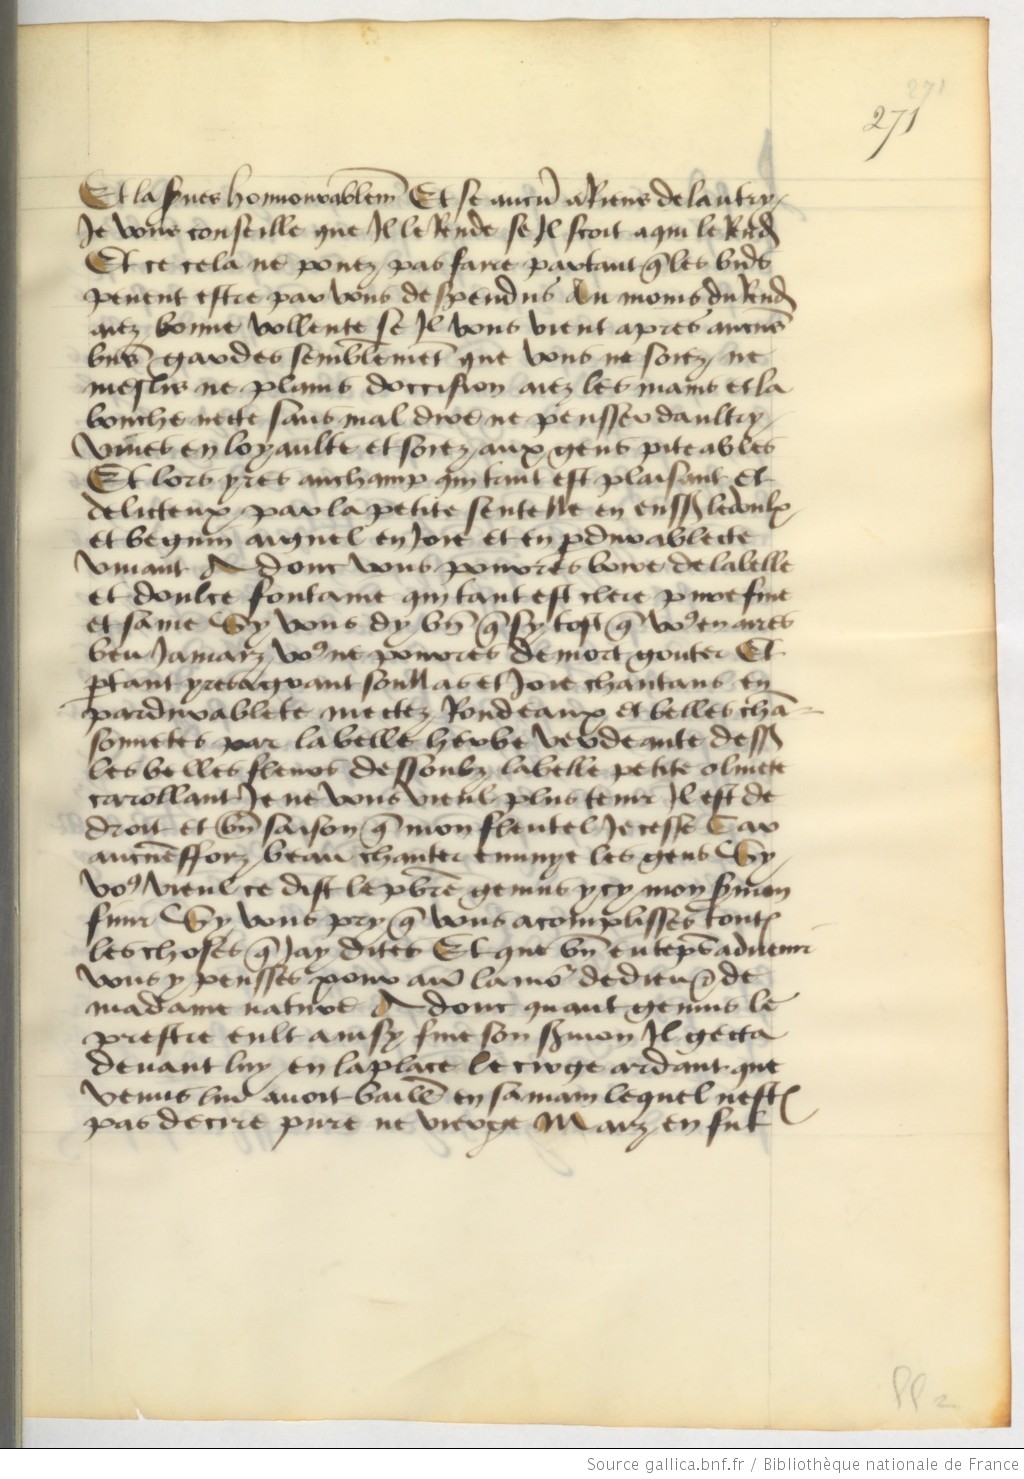 271
271
Et la serues honnourablemt Et se aucun a Riens de lautry
Je vous conseille que Il le Rende se Il scoit a qui le Rendr
Et ce cela ne pouez pas faire partant q les biens
peuent estre par vous despendus Au moins du Rendr
aiez bonne vollente se Il vous vient apres aucuns
biens gardes semblemet que vous ne soiez ne
meslis ne plains doccision aiez les mains et la
bouche nette sans mal dire ne pensser daultry
viues en loyaulte et soiez aux gens piteables
Et lors yres au champ qui tant est plaisant et
delicteux par la petite sentelle en ensuiuant le doulx
et begnin aignel en Joie et en pdurablete
viuant Adonc vous pourres boire de la belle
et doulce fontaine qui tant est clere pure fine
et saine Sy vous dy bn q sy tost q vo9 en aures
beu Jamaiz vo9 ne pourres de mort gouter Et
ptant yres agrant soullas et Joie chantans en
pardurablete mectez Rondeaux et belles chan
sonnetes par la belle herbe verdeante dessus
les belles fleurs dessoubz la belle petite oliuete
carollant Je ne vous vieul plus tenir Il est de
droit et bn saison q mon fleutel Je cesse Car
aucuneffoiz beau chanter ennuye les gens Sy
vo9 vieul ce dist le pbre genius ycy mon sermon
finir Sy vous pry q vous acomplisses toutes
les choses q Jay dites Et que bn en temps aduenir
vous y pensses pour auoir lamor de dieu et de
madame nature Adonc quant genius le
prestre eult ainsy fine son smon Il gecta
deuant luy en la place le cirge ardant que
venus lui auoit baille en sa main lequel nestr
pas de cire pure ne vierge Maiz en fut
Source gallica.bnf.fr / Bibliothèque nationale de France